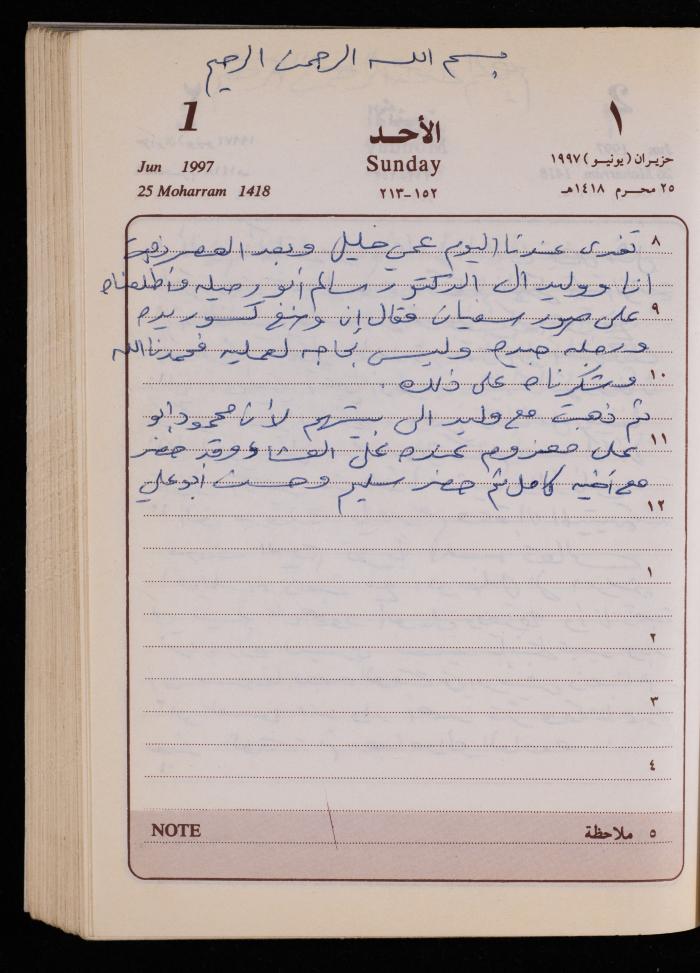 بسم الله الرحمن الرحيم
1 الأحد ١
Jun 1997 Sunday حزيران (يونيو) ١٩٩٧
25 Moharram 1418 ٢١٣-١٥٢ ٢٥ محرم ١٤١٨هـ
٨ تغدى عندنا اليوم عمي خليل وبعد العصر ذهبت
انا ووليد الى الدكتور سالم أبو رصيله وأطلعناه
٩ على صور سفيان فقال إن وضع كسور يده
ورجله جيده وليس بحاجه لعمليه فحمدنا الله
١٠ وشكرناه على ذلك .
ثم ذهبت مع وليد الى بيتهم لأن محمود ابو
١١ علي معزوم عنده على العشاء وقد حضر
مع أخيه كامل ثم حضر سليم وحسن أبو علي
١٢
١
٢
٣
٤
NOTE ٥ ملاحظة